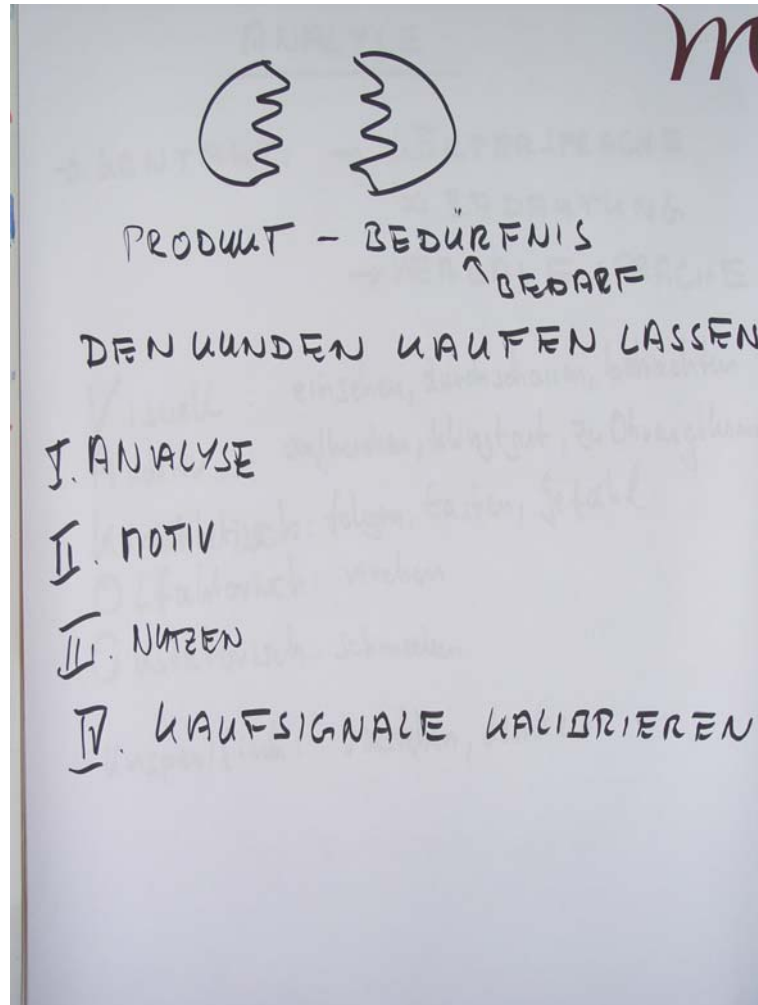 PRODUKT – BEDÜRFNIS
BEDARF
DEN KUNDEN KAUFEN LASSEN
I. ANALYSE
II. MOTIV
III. NUTZEN
IV. KAUFSIGNALE KALIBRIEREN